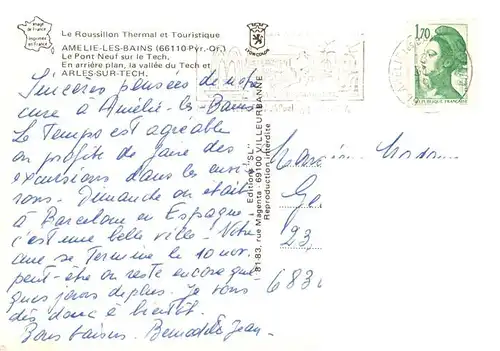 Image de France
Imprimée en France
Le Roussillon Thermal et Touristique
AMELIE-LES-BAINS (66110-Pyr.-Or.)
Le Pont Neuf sur le Tech.
En arrière plan, la vallée du Tech et
ARLES-SUR-TECH.
LYONCOLOR
1,70
REPUBLIQUE FRANÇAISE
Sincères pensées de notre
cure à Amélie-les-Bains
Le Temps est agréable
on profite de faire des
excursions dans les envi-
rons. Dimanche on était
à Barcelone en Espagne
c'est une belle ville. Notre
cure se termine le 10 nov.
peut-être on reste encore quel
ques jours de plus. Je vous
dès donc à bientôt.
Bons baisers. Jean.
Editions "SL"
81-83, rue Magenta - 69100 VILLEURBANNE
Reproduction interdite
23